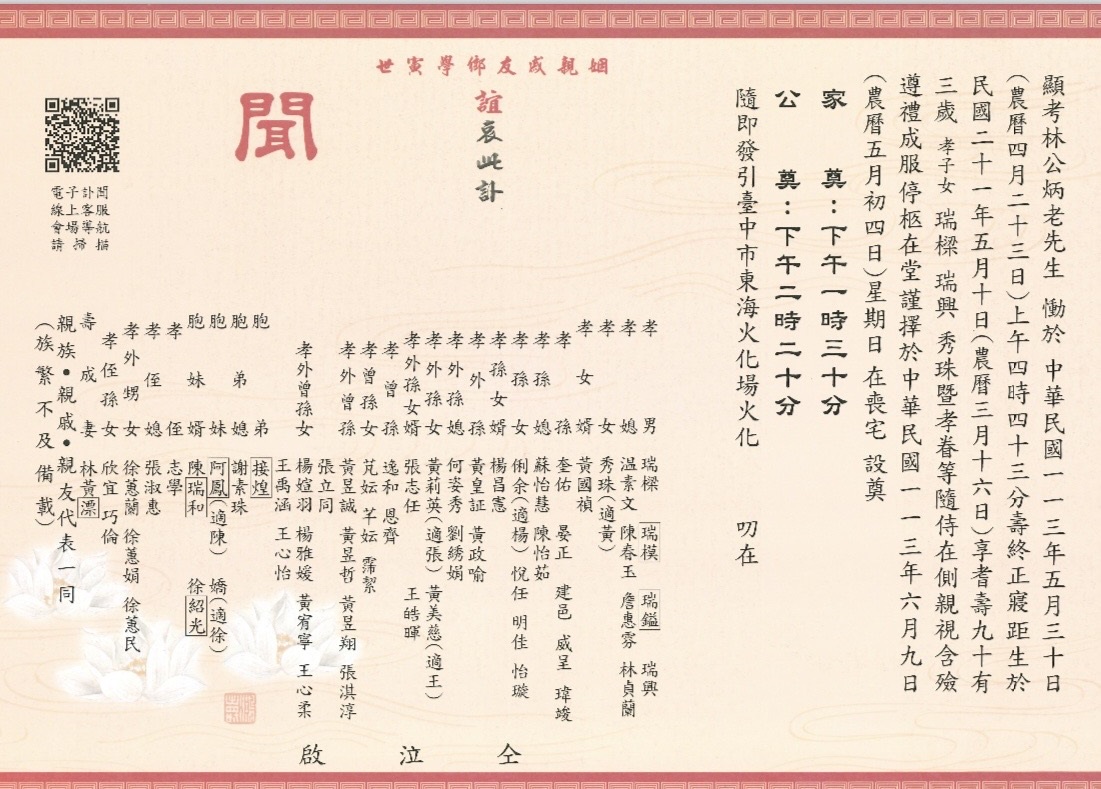 顯考林公炳老先生 慟於 中華民國一一三年五月三十日
(農曆四月二十三日)上午四時四十三分壽終正寢距生於
民國二十一年五月十日(農曆三月十六日)享耆壽九十有
三歲 孝子女 瑞樑 瑞興 秀珠暨孝眷等隨侍在側親視含殮
遵禮成服停柩在堂謹擇於中華民國一一三年六月九日
(農曆五月初四日)星期日 在喪宅 設奠
家 奠:下午一時三十分
公 奠:下午二時二十分
隨即發引臺中市東海火化場火化 叨在
姻親戚友鄉學寅世
誼哀此訃
聞
孝男 瑞樑 瑞模 瑞鎰 瑞興
孝媳 温素文 陳春玉 詹惠雰 林貞蘭
孝女 秀珠(適黃)
孝女婿 黃國禎
孝孫 奎佑 晏正 建邑 威呈 瑋竣
孝孫媳 蘇怡慧 陳怡茹
孝孫女 俐余(適楊) 悅任 明佳 怡璇
孝孫女婿 楊昌憲
孝外孫 黃皇証 黃政喻
孝外孫媳 何姿秀 劉綉娟
孝外孫女 黃莉英(適張) 黃美慈(適王)
孝外孫女婿 張志任 王皓暉
孝曾孫 逸和 恩齊
孝曾孫女 芃妘 芊妘 霈絜
孝外曾孫 黃昱誠 黃昱哲 黃昱翔 張淇淳
張立同
孝外曾孫女 楊媗羽 楊雅媛 黃宥寧 王心柔
王禹涵 王心怡
胞弟 接煌
胞弟媳 謝素珠
胞妹 阿鳳(適陳) 嬌(適徐)
胞妹婿 陳瑞和 徐紹光
孝侄 志學
孝侄媳 張淑惠
孝外甥女 徐蕙蘭 徐蕙娟 徐蕙民
孝侄孫女 欣宜 巧倫
壽成妻 林黃漂
親族•親戚•親友代表一同
(族繁不及備載)
仝 泣 啟
電子訃聞
線上客服
會場導航
請掃描